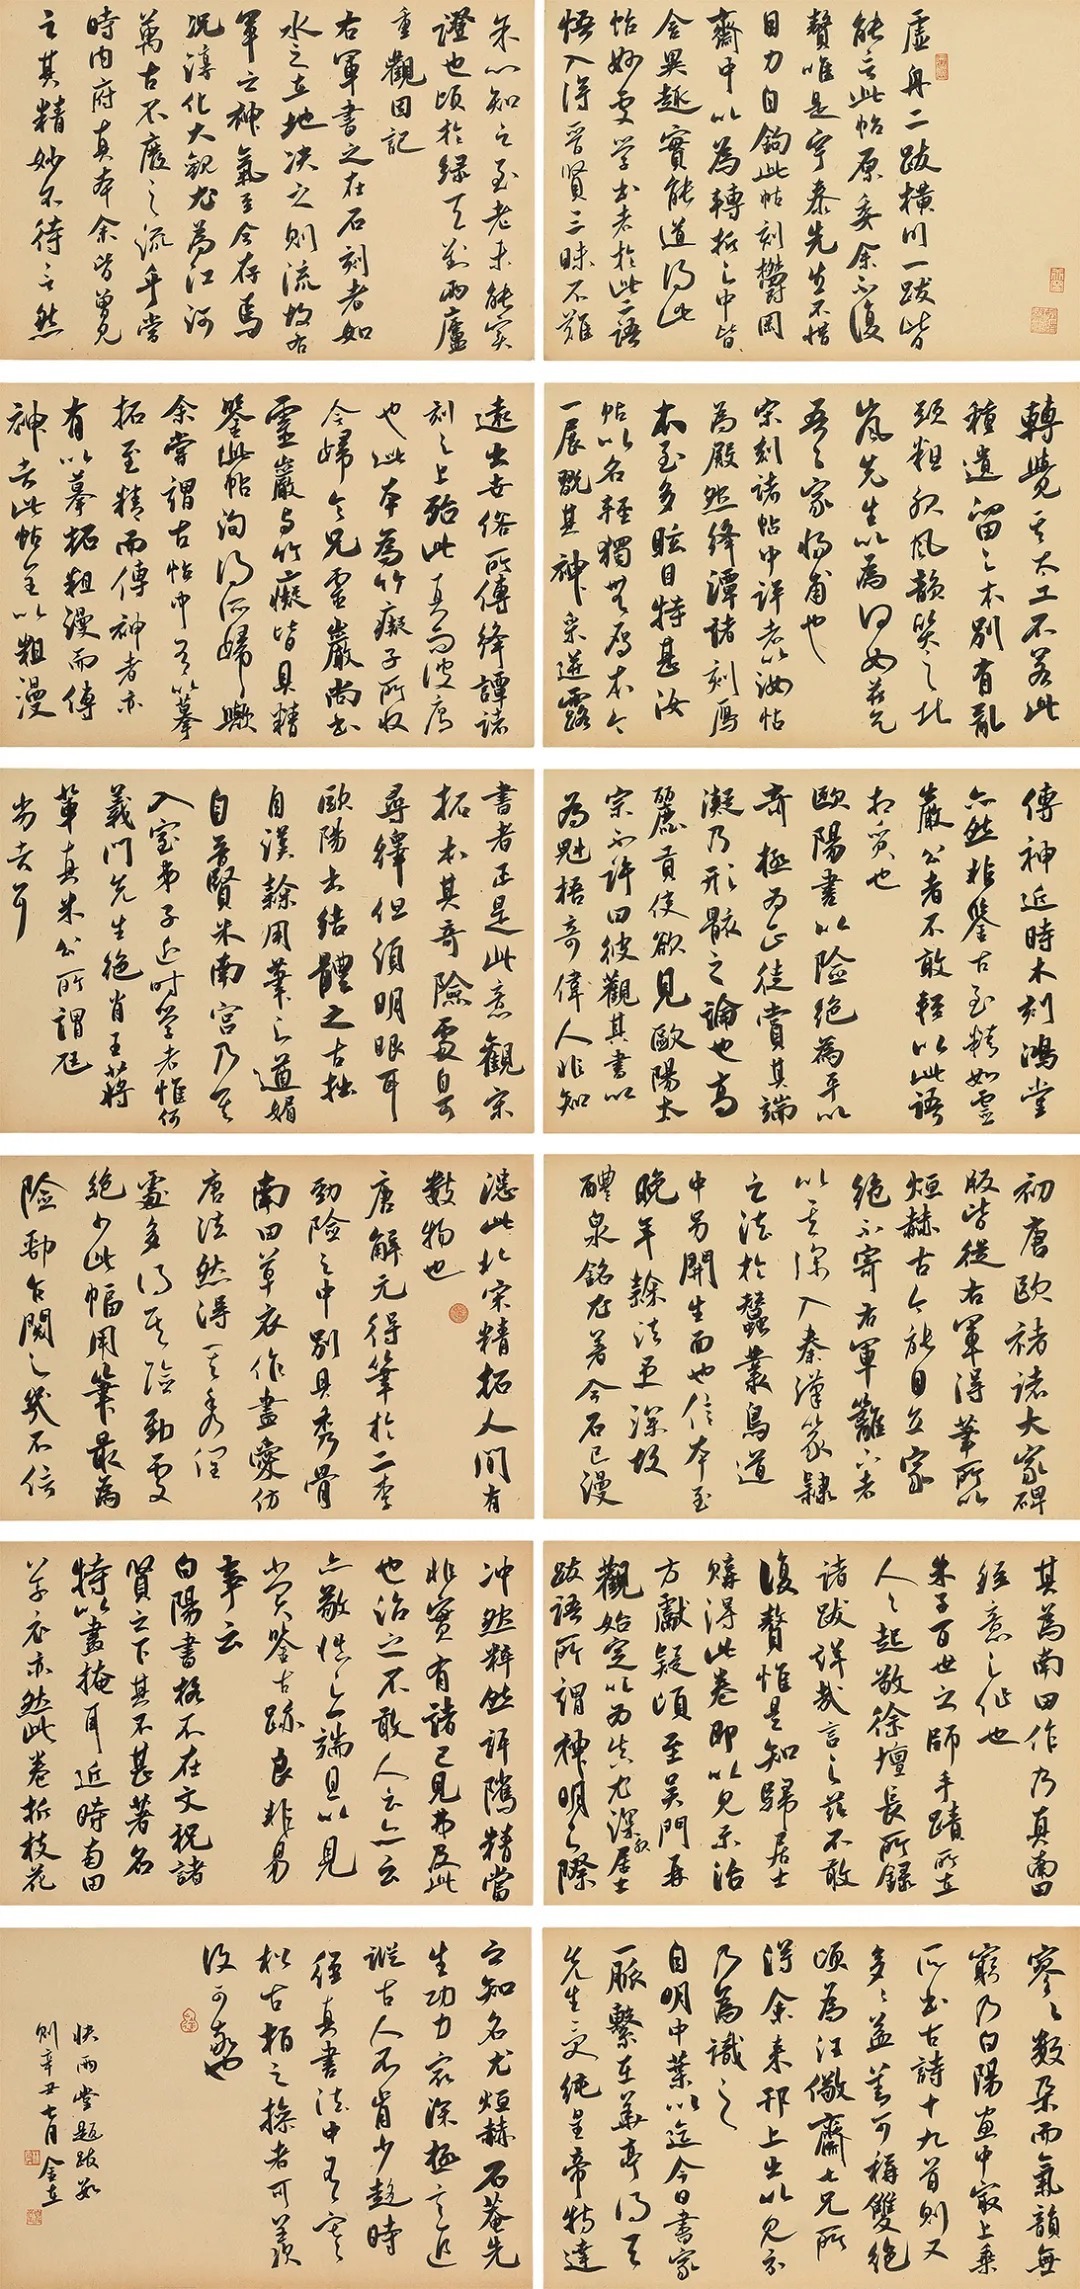 虚舟二跋横川一跋皆
能言此帖原委余不復
贅唯是宇泰先生不惜
目力自鉤此帖刻欝岡
齋中以為轉折之中皆
含異趣實能道得此
帖妙更學书者於此二語
悟入得晋賢三昧不難
矣心知之至老未能实
證也頃於緑天對雨廬
重觀因記
右軍書之在石刻者如
水之在地决之則流故右
軍之神氣至今存焉
况淳化大観尤為江河
萬古不廢之流乎當
時内府真本余皆曾見
之其精妙不待言然
轉覺其太工不若此
種遺留之本别有亂
頭粗服風韻質之北
嵐先生以為何如若先
吾家物角也
宋刻諸帖中評者以汝帖
為殿然绛潭諸刻贋
本至多眩目特甚汝
帖以名輕獨無贋本今
一展翫其神采迸露
遠出世俗所傳绛譚諸
刻之上殆此真而彼贋
也此本為竹癡子所收
今婦令兄雪巖尚书
靈巖与竹癡皆具精
鑒此帖洵得所婦歟
余嘗謂古帖中有以摹
拓至精而傳神者亦
有以摹拓粗漫而傳
神者此帖全以粗漫
傳神近時木刻鴻堂
亦然非鑒古至精如靈
巖公者不敢輕以此語
相質也
歐陽書以险绝為平以
奇極为正徒賞其端
凝乃形骸之論也高
麗貢使欲見歐陽太
宗不許曰彼觀其書以
為魁梧奇偉人非知
書者正是此意觀宋
拓本其奇險處自可
尋繹但須明眼耳
歐陽书結體之古拙
自漢隸用筆之遒媚
自晋賢米南宫乃其
入室弟子近时学者惟何
義門先生绝肖王蔣
輩真米公所謂尫
尚者耳
初唐歐褚諸大家碑
版皆從右軍得筆所以
烜赫古今能自立家
绝不寄右軍籬下者
以其深入秦漢篆隸
之法於蠶叢鳥道
中另開生面也信本至
晚年隸法更深故
醴泉銘尤著今石已漫
漶此北宋精拓人間有
數物也
唐解元得筆於二李
勁險之中别具秀骨
南田草衣作畫愛仿
唐法然得其秀潤
處多得其险勁處
絶少此幅用筆最為
險勁乍閱之幾不信
其為南田作乃真南田
經意之作也
朱子百世之師手蹟所在
人人起敬徐壇長所錄
諸跋詳哉言之兹不敢
復贅惟是知歸居士
購得此卷即以見示治
方獻疑頃至吴門再
觀始定以为真尤深服居士
跋語所謂神明之際
冲然粹然評隲精當
非實有諸己見弗及此
也治之不敢人云亦云
亦敬慎之一端且以見
尚質鑒古跡良非易
事云
白陽書格不在文祝諸
賢之下其不甚著名
特以畫掩耳近時南田
草衣亦然此卷折枝花
寥寥數朵而氣韻無
窮乃白陽畫中最上乘
所书古詩十九首則又
多多益善可稱雙绝
頃為汪儆齋七兄所
得余来邗上出以見示
乃為識之
自明中葉以迄今日書家
一脈繫在華亭得天
先生受純皇帝特達
之知名尤烜赫石菴先
生功力寂深極意追
蹤古人不肯少趋時
徑真書法中有寒
松古柏之操者可羡
後可敬也
快雨堂題跋數
則辛丑七月 金在